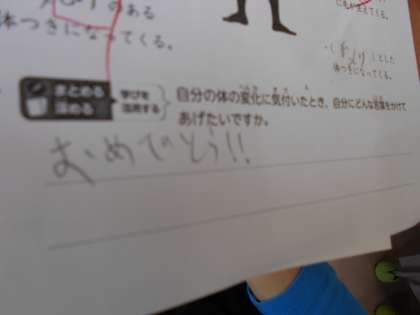 のある
体つきになってくる。
とした
体つきになってくる。
まとめる
深める
学びを
活用する
自分の体の変化に気付いたとき、自分にどんな言葉をかけて
あげたいですか。
おめでとう!!